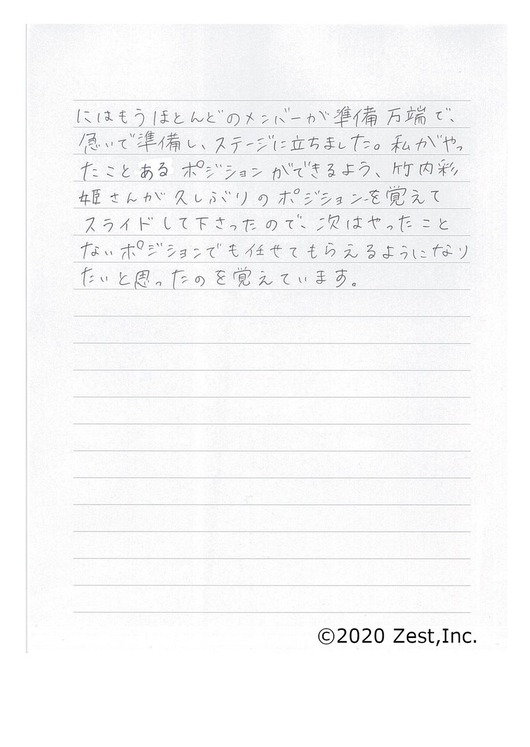 にはもうほとんどのメンバーが準備万端で、
急いで準備し、ステージに立ちました。私がやっ
たことあるポジションができるよう、竹内彩
姫さんが久しぶりのポジションを覚えて
スライドして下さったので、次はやったこと
ないポジションでも任せてもらえるようになり
たいと思ったのを覚えています。
©2020 Zest,Inc.